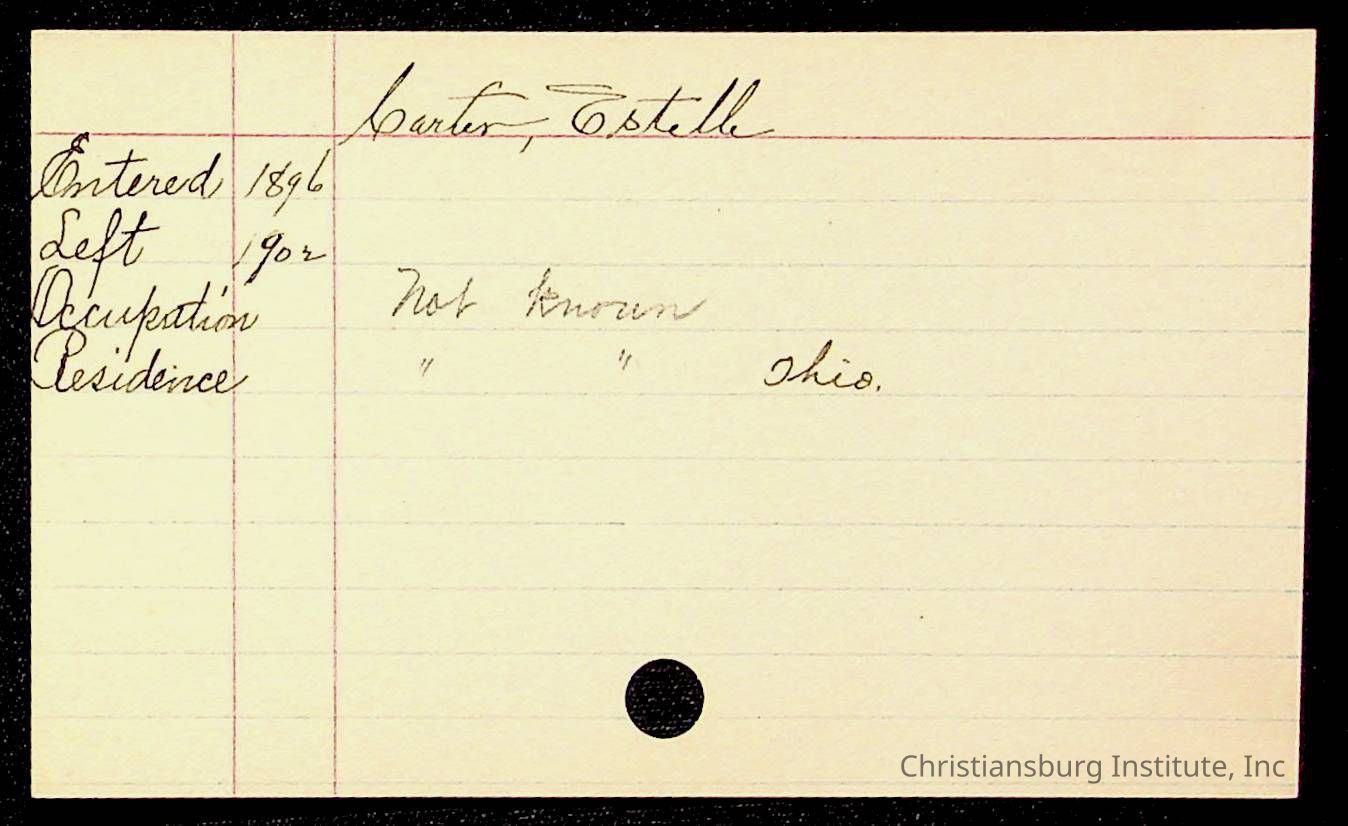 Carter, Estelle
Entered 1896
Left 1902
Occupation Not known
Residence " " Ohio.
Christiansburg Institute, Inc